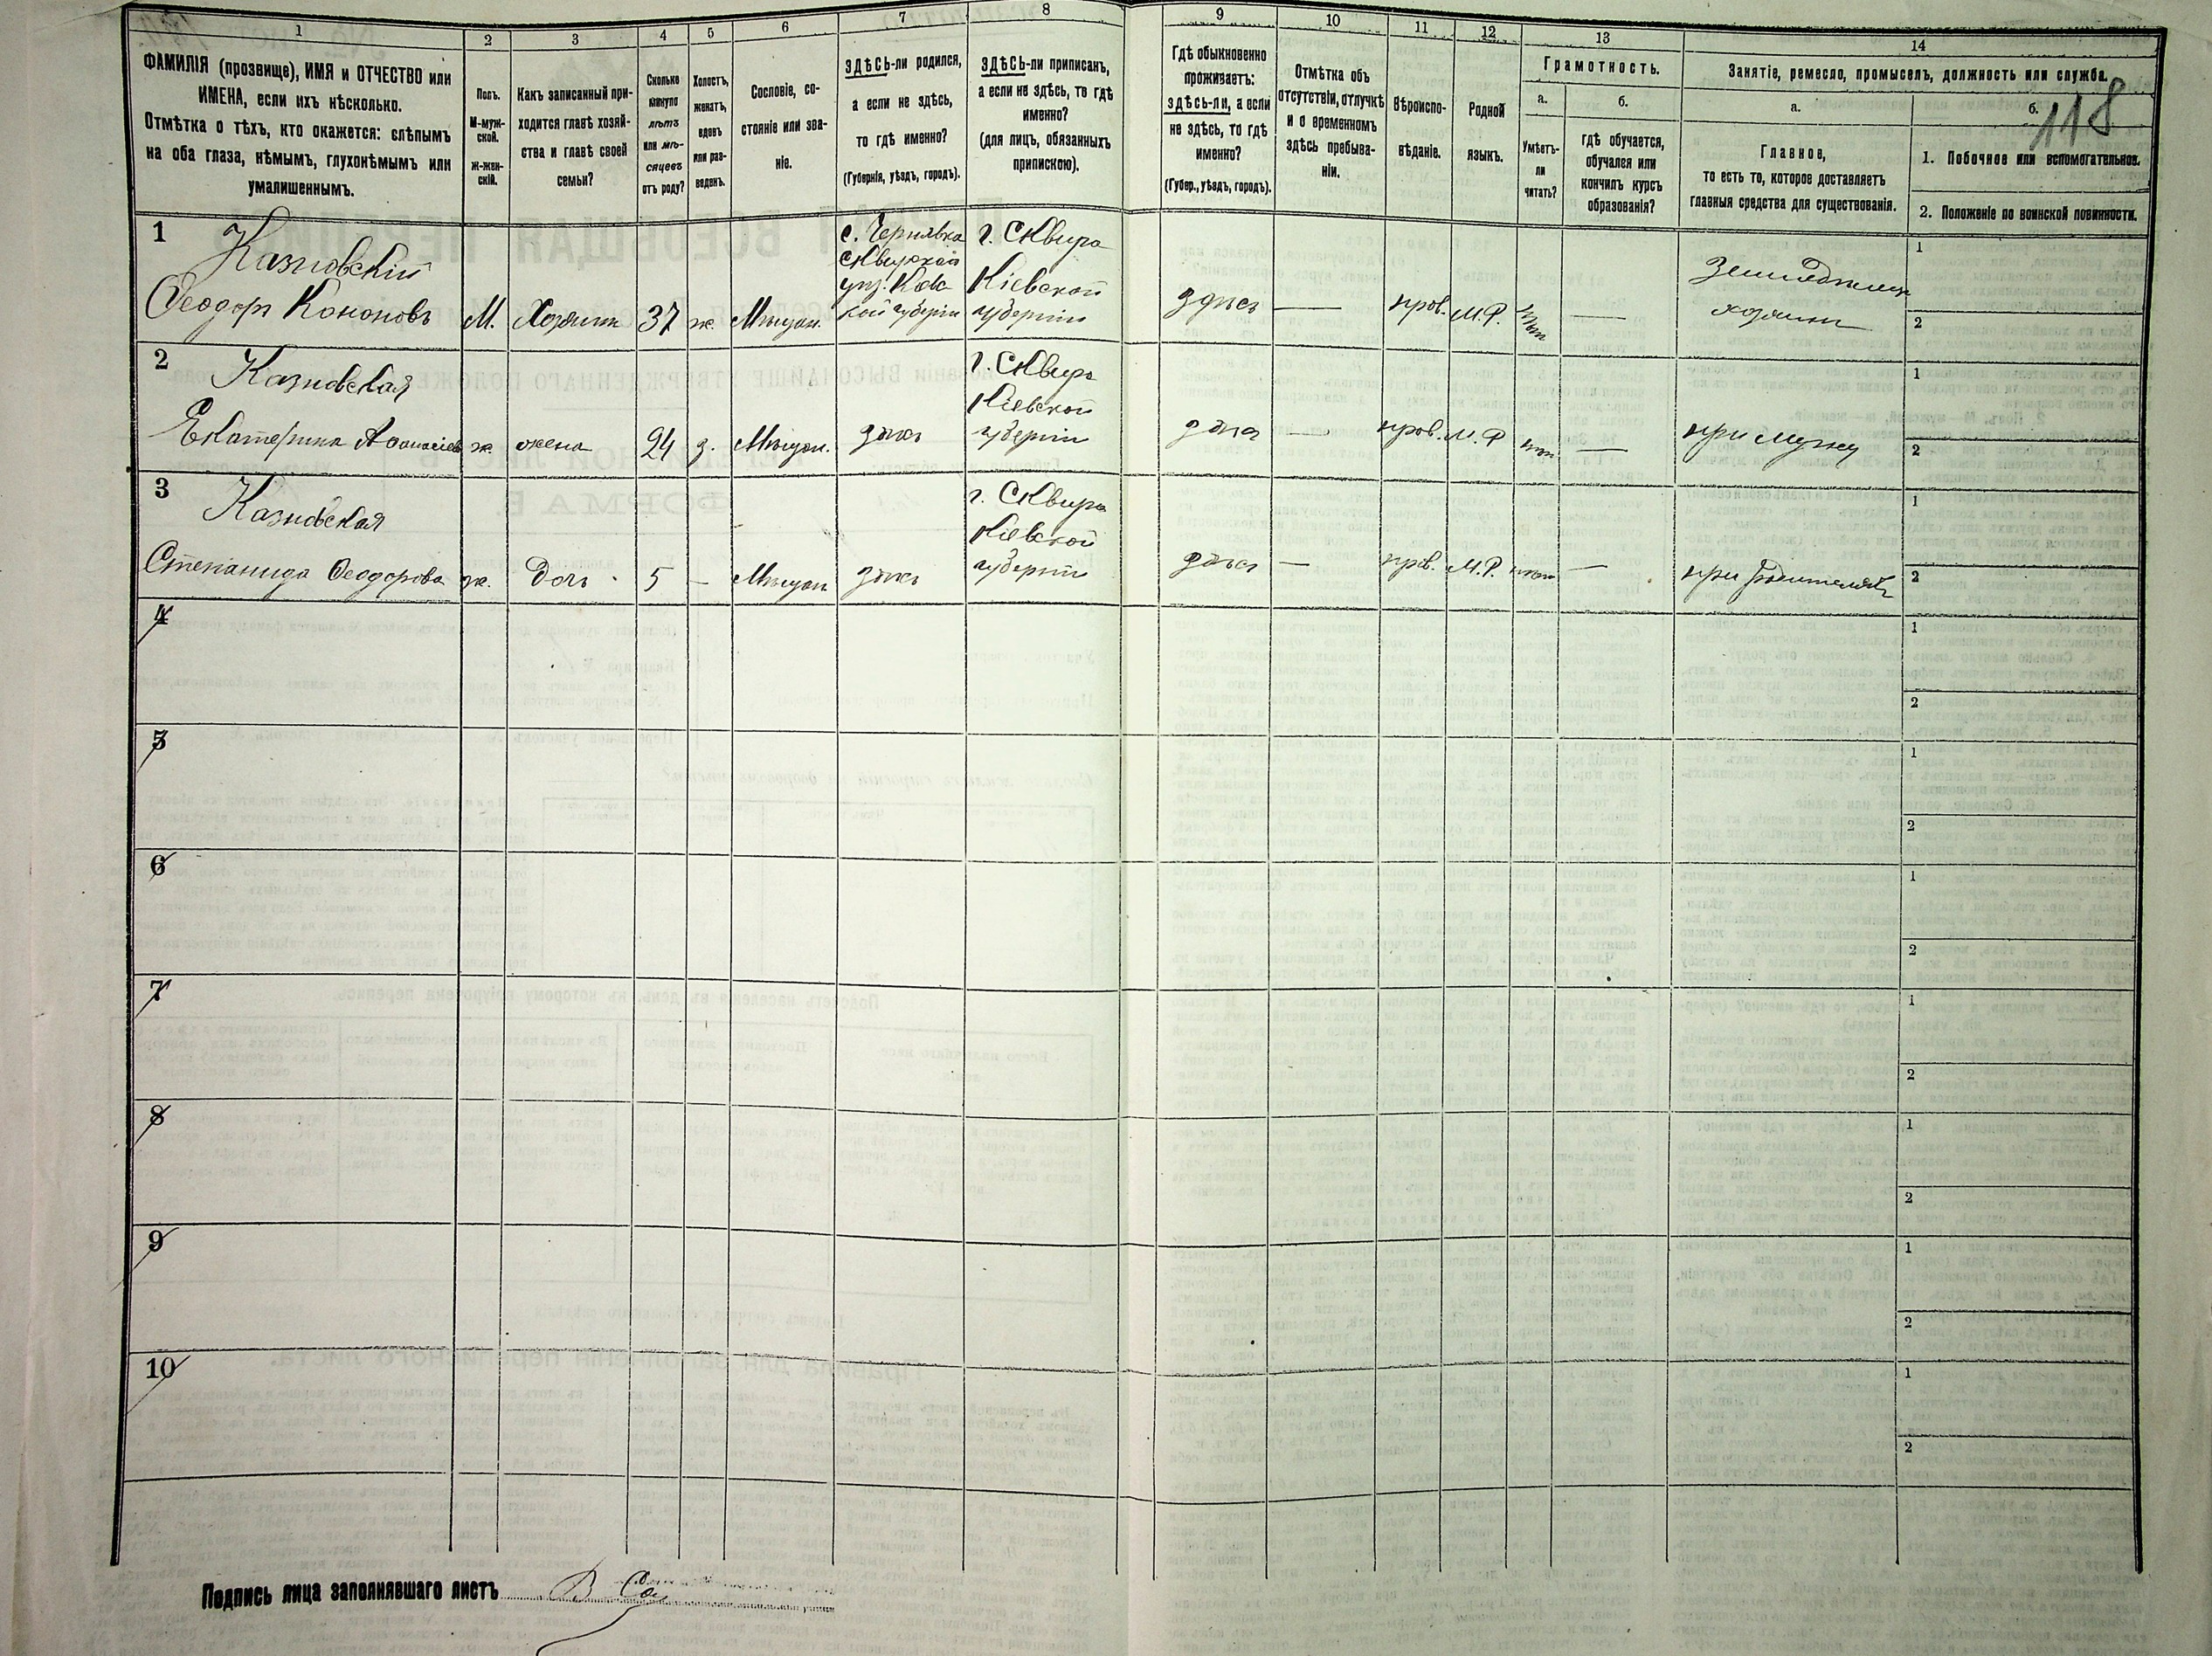 1 2 3 4 5 6 7 8 9 10 11 12 13 14
ФАМИЛІЯ (прозвище), ИМЯ и ОТЧЕСТВО или
ИМЕНА, если ихъ нѣсколько.
Отмѣтка о тѣхъ, кто окажется: слѣпымъ
на оба глаза, нѣмымъ, глухонѣмымъ или
умалишеннымъ.
Полъ.
М-муж-
ской.
ж-жен-
скій.
Какъ записанный при-
ходится главѣ хозяй-
ства и главѣ своей
семьи?
Сколько
минуло
лѣтъ
или мѣ-
сяцевъ
отъ роду?
Холостъ,
женатъ,
вдовъ
или раз-
веденъ.
Сословіе, со-
стояніе или зва-
ніе.
ЗДѢСЬ-ли родился,
а если не здѣсь,
то гдѣ именно?
(Губернія, уѣздъ, городъ).
ЗДѢСЬ-ли приписанъ,
а если не здѣсь, то гдѣ
именно?
(для лицъ, обязанныхъ
припискою).
Гдѣ обыкновенно
проживаетъ:
здѣсь-ли, а если
не здѣсь, то гдѣ
именно?
(Губер., уѣздъ, городъ).
Отмѣтка объ
отсутствіи, отлучкѣ
и о временномъ
здѣсь пребыва-
ніи.
Вѣроиспо-
вѣданіе.
Родной
языкъ.
Грамотность.
а.
Умѣетъ-
ли
читать?
б.
гдѣ обучается,
обучался или
кончилъ курсъ
образованія?
Занятіе, ремесло, промыселъ, должность или служба.
а.
Главное,
то есть то, которое доставляетъ
главныя средства для существованія.
б.
118
1. Побочное или вспомогательное.
2. Положеніе по воинской повинности.
1
Казновскій
Ѳеодоръ Кононовъ
М.
Хозяинъ
37
ж.
Мѣщан.
с. Чернявка
Сквирскаго
г. Сквира
Кіевской
губерніи
здѣсь
—
прав.
М.Р.
нѣтъ
—
хозяинъ
1
2
2
Казновская
Екатерина
ж.
жена
24
з.
Мѣщан.
здѣсь
г. Сквира
Кіевской
губерніи
здѣсь
—
прав.
М.Р
нѣт
—
при мужѣ
1
2
3
Казновская
Степанида Ѳеодорова
ж.
Дочь
5
—
Мѣщан
здѣсь
г. Сквира
Кіевской
губерніи
здѣсь
—
прав.
М.Р.
нѣт
—
при родителяхъ
1
2
4
1
2
5
1
2
6
1
2
7
1
2
8
1
2
9
1
2
10
1
2
Подпись лица заполнявшаго листъ